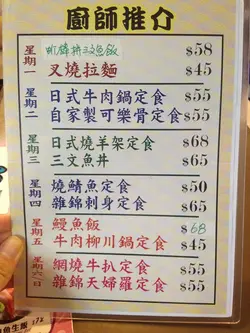 廚師推介
星期一
三文魚飯 $58
叉燒拉麵 $45
星期二
日式牛肉鍋定食 $55
自家製可樂骨定食 $55
星期三
日式燒羊架定食 $68
三文魚丼 $65
星期四
燒鯖魚定食 $50
雜錦刺身定食 $65
星期五
鰻魚飯 $68
牛肉柳川鍋定食 $45
星期六日
網燒牛扒定食 $55
雜錦天婦羅定食 $55
魚生飯